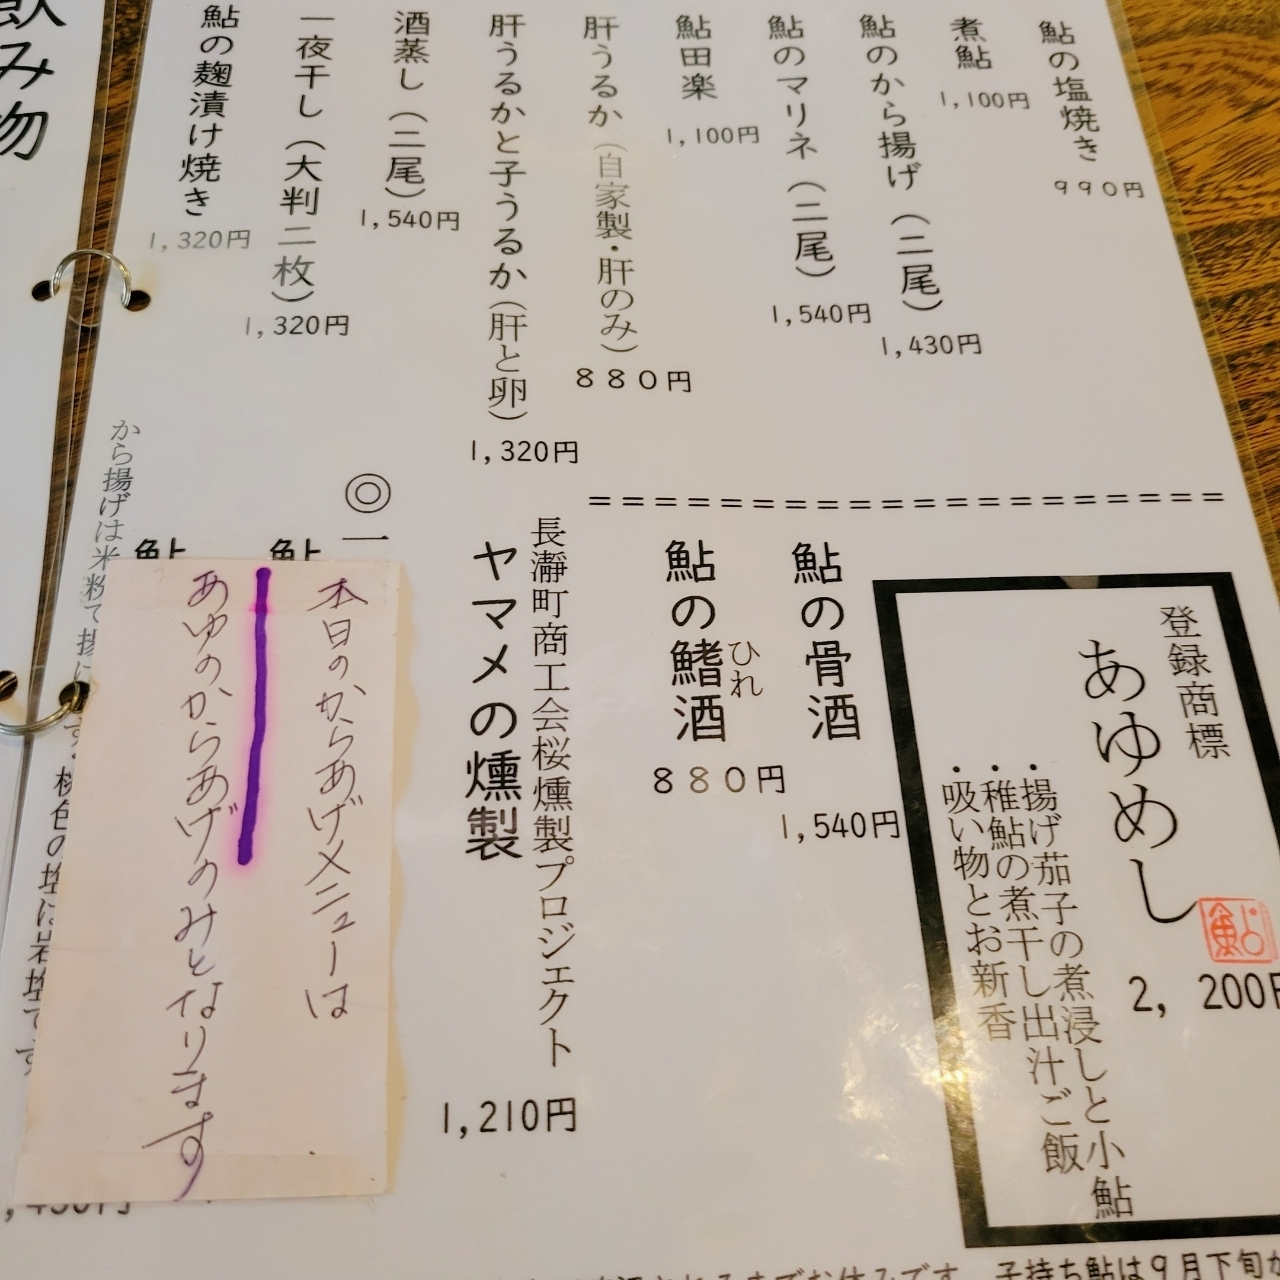 鮎の塩焼き
990円
煮鮎
1,100円
鮎のから揚げ（二尾）
1,430円
鮎のマリネ（二尾）
1,540円
鮎田楽
1,100円
肝うるか（自家製・肝のみ）
880円
肝うるかと子うるか（肝と卵）
1,320円
酒蒸し（二尾）
1,540円
一夜干し（大判二枚）
1,320円
鮎の麹漬け焼き
1,320円
飲み物
====================
登録商標
あゆめし
鮎
2,200円
・揚げ茄子の煮浸しと小鮎
・稚鮎の煮干し出汁ご飯
・吸い物とお新香
鮎の骨酒
1,540円
鮎の鰭酒
ひれ
880円
長瀞町商工会桜燻製プロジェクト
ヤマメの燻製
1,210円
◎一
鮎
鮎
本日のからあげメニューは
あゆのからあげのみとなります
から揚げは米粉で揚げ
す。桃色の塩は岩塩です
子持ち鮎は9月下旬か
までお休みです。